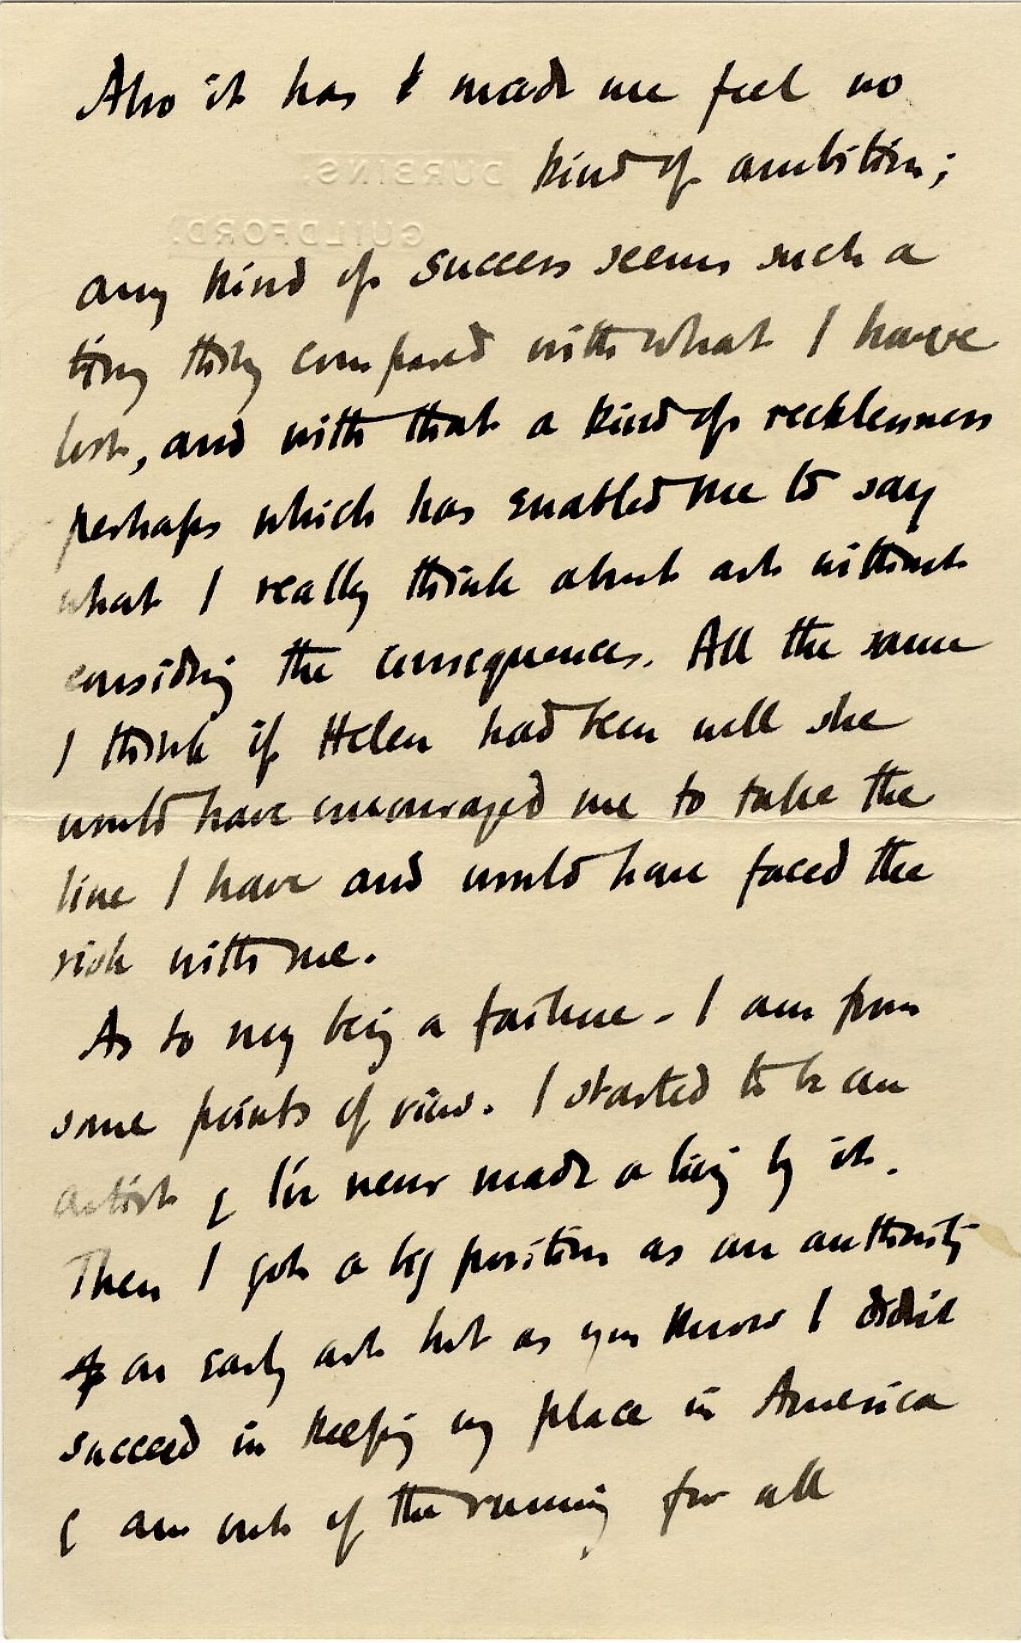 Also it has made me feel no
DURBINS.
kind of ambition;
GUILDFORD.
any kind of success seems such a
tiny thing compared with what I have
lost, and with that a kind of recklessness
perhaps which has enabled me to say
what I really think about art without
considring the consequences. All the same
I think if Helen had been well she
would have encouraged me to take the
line I have and would have faced the
risk with me.
As to my being a failure - I am from
some points of view. I started to be an
artist & I've never made a living by it.
Then I got a big position as an authority
on early art but as you know I didn't
succeed in keeping my place in America
& am out of the running for all